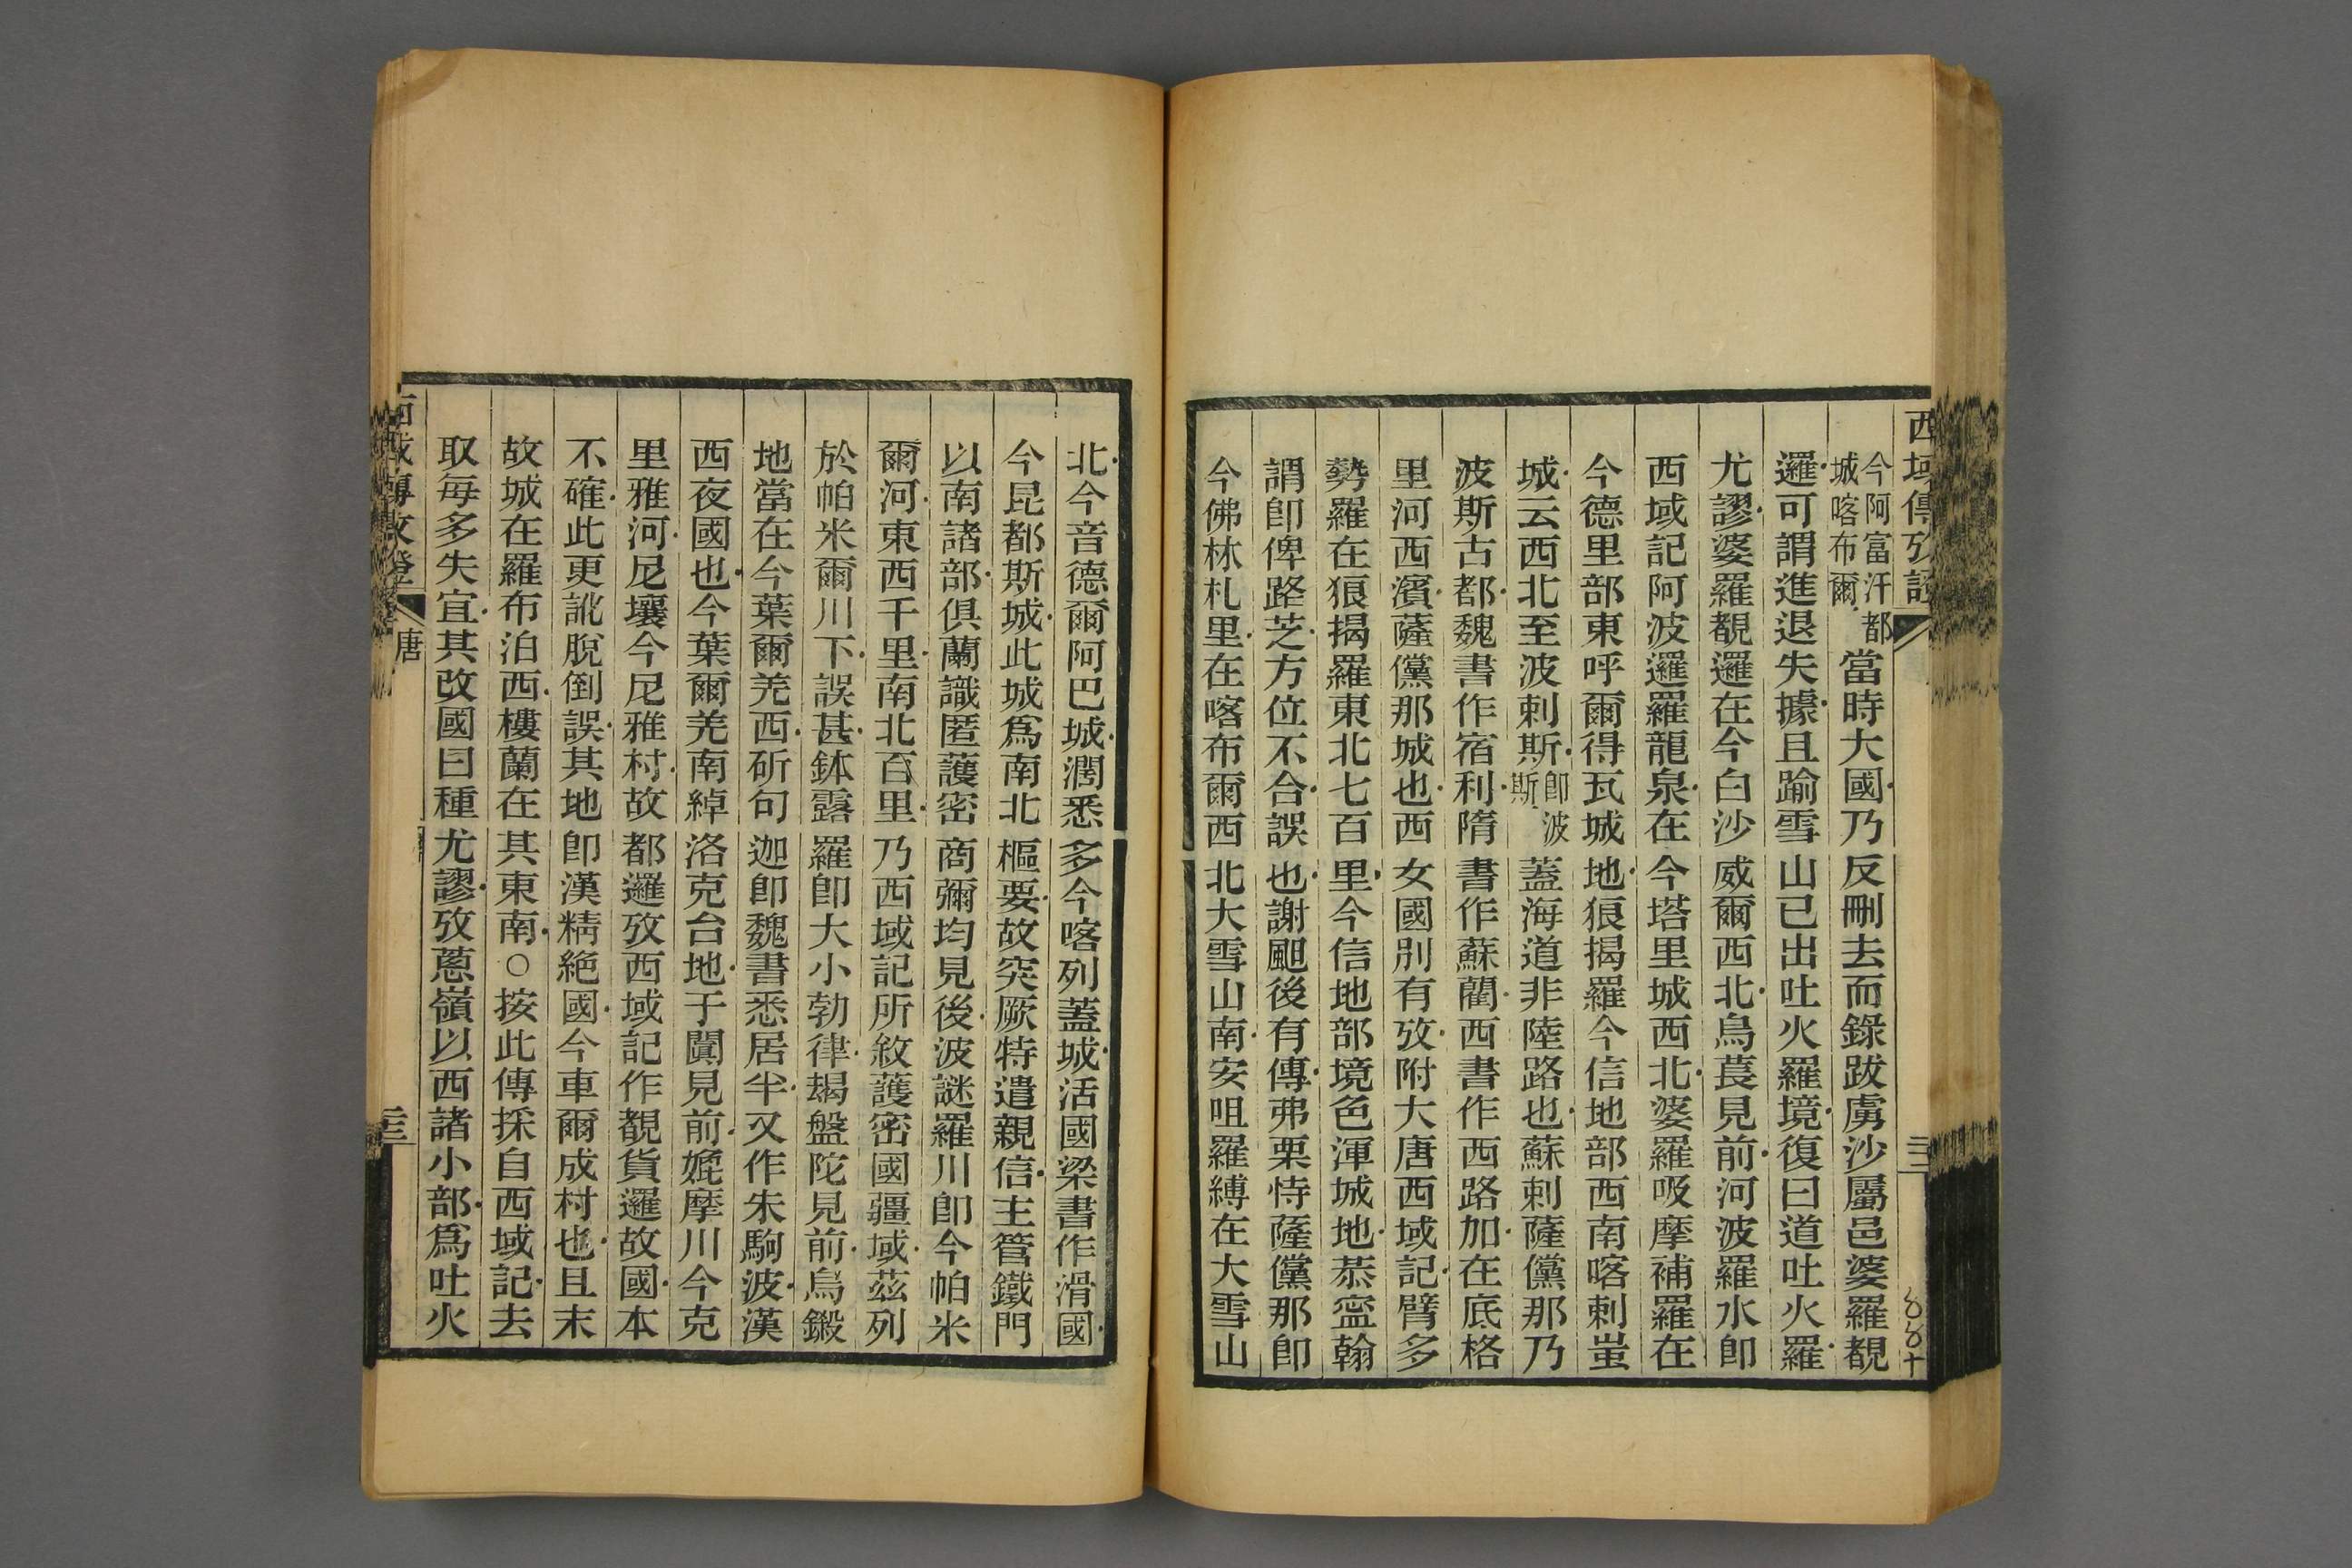 西域傳攷證
今阿富汗都城喀布爾當時大國乃反刪去而錄跋虜沙屬邑婆羅覩
邏可謂進退失據且踰雪山已出吐火羅境復曰道吐火羅
尤謬婆羅覩邏在今白沙威爾西北烏萇見前河波羅水卽
西域記阿波邏羅龍泉在今塔里城西北婆羅吸摩補羅在
今德里部東呼爾得瓦城地狼揭羅今信地部西南喀剌蚩
城云西北至波剌斯卽波斯蓋海道非陸路也蘇剌薩儻那乃
波斯古都魏書作宿利隋書作蘇藺西書作西路加在底格
里河西濱薩儻那城也西女國別有攷附大唐西域記臂多
勢羅在狼揭羅東北七百里今信地部境色渾城地恭寍翰
謂卽俾路芝方位不合誤也謝䫻後有傳弗栗恃薩儻那卽
今佛林札里在喀布爾西北大雪山南安呾羅縛在大雪山
北今音德爾阿巴城濶悉多今喀列蓋城活國梁書作滑國
今昆都斯城此城爲南北樞要故突厥特遣親信主管鐵門
以南諸部俱蘭識匿護密商彌均見後波謎羅川卽今帕米
爾河東西千里南北百里乃西域記所敘護密國疆域茲列
於帕米爾川下誤甚鉢露羅卽大小勃律朅盤陀見前烏鎩
地當在今葉爾羌西斫句迦卽魏書悉居半又作朱駒波漢
西夜國也今葉爾羌南綽洛克台地于闐見前媲摩川今克
里雅河尼壤今尼雅村故都邏攷西域記作覩貨邏故國本
不確此更訛脫倒誤其地卽漢精絶國今車爾成村也且末
故城在羅布泊西樓蘭在其東南○按此傳採自西域記去
取每多失宜其改國曰種尤謬攷蔥嶺以西諸小部爲吐火
唐